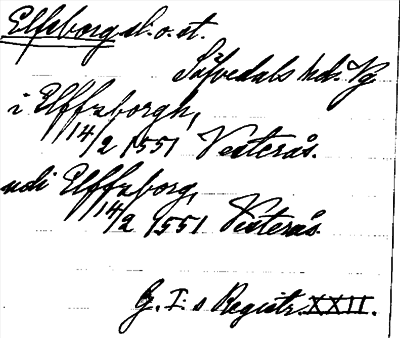 Elfsborg sl. o. st.
Säfvedals hd. Vg
i Elffzborgh,
14/2 1551 Vesterås.
udi Elffzborg,
14/2 1551 Vesterås
G. I:s Registr. XXII.